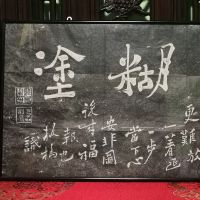 糊塗
更難放
一著退
一步
當下心
安非圖
後来福
報也
板橋
識